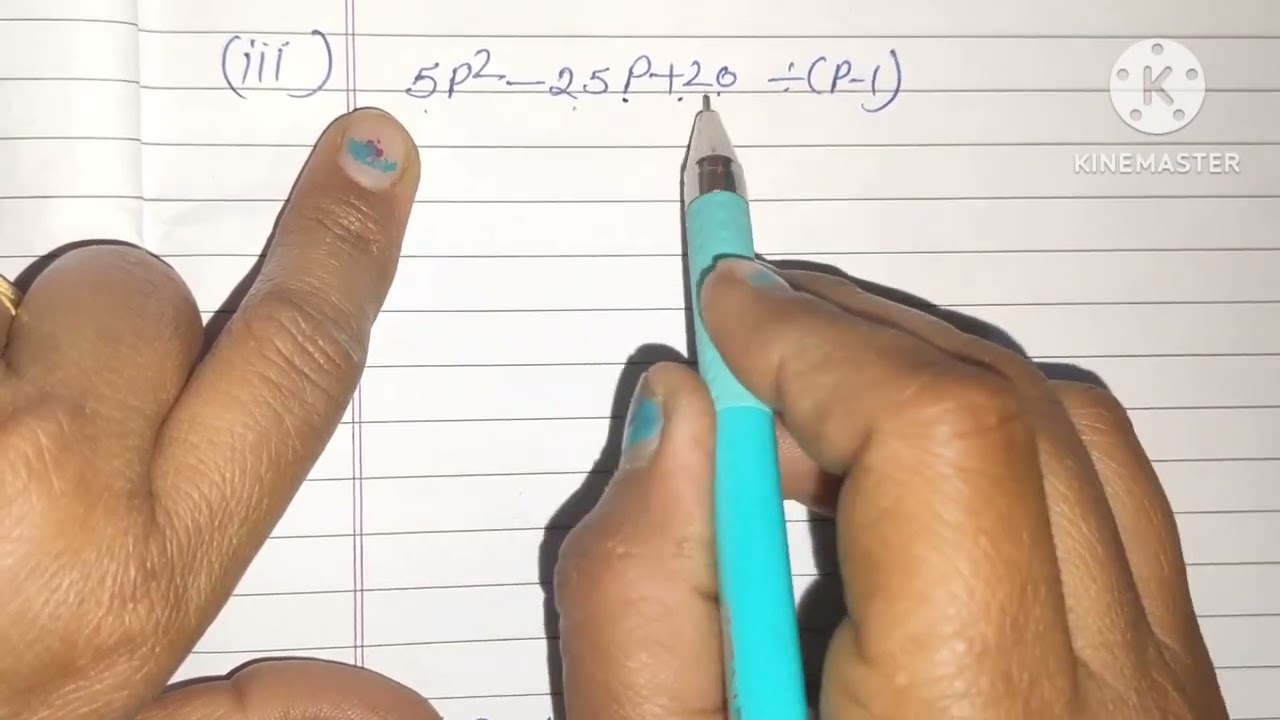 (iii) 5P²-25P+20 ÷(P-1)
K
KINEMASTER